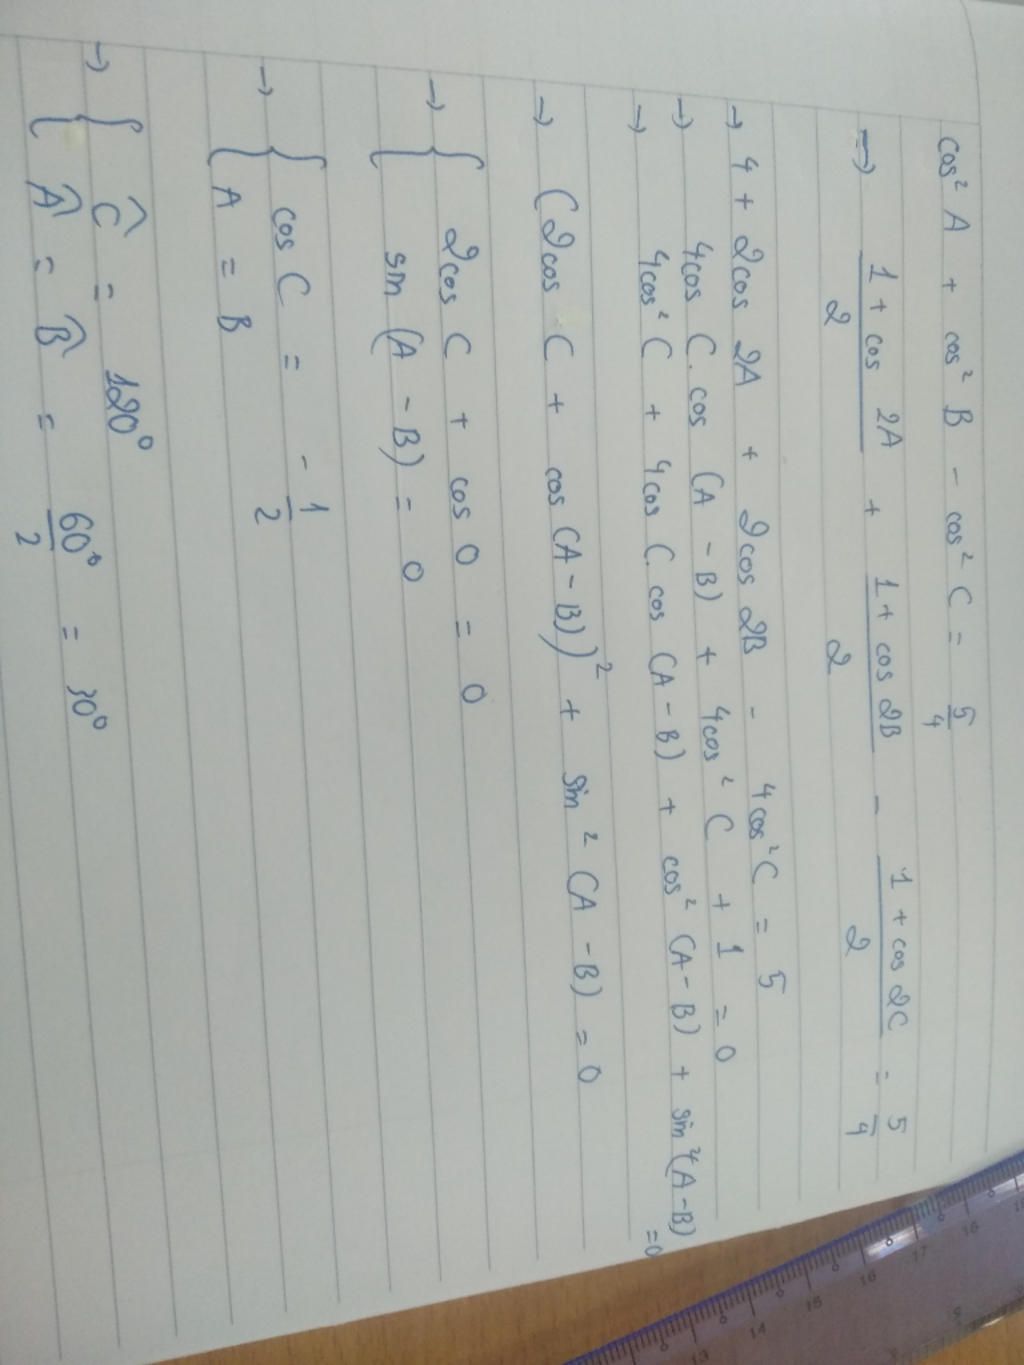 cos² A + cos² B - cos² C = 5/4
→ (1 + cos 2A)/2 + (1 + cos 2B)/2 - (1 + cos 2C)/2 = 5/4
→ 4 + 2cos 2A + 2cos 2B - 4cos² C = 5
→ 4cos C. cos (A - B) + 4cos² C + 1 = 0
→ 4cos² C + 4cos C. cos (A - B) + cos² (A - B) + sin² (A - B) = 0
→ (2cos C + cos (A - B))² + sin² (A - B) = 0
→ { 2cos C + cos 0 = 0
sin (A - B) = 0
→ { cos C = - 1/2
A = B
→ { Ĉ = 120°
Â = B̂ = 60°/2 = 30°
15
16
17
16
15
14
13